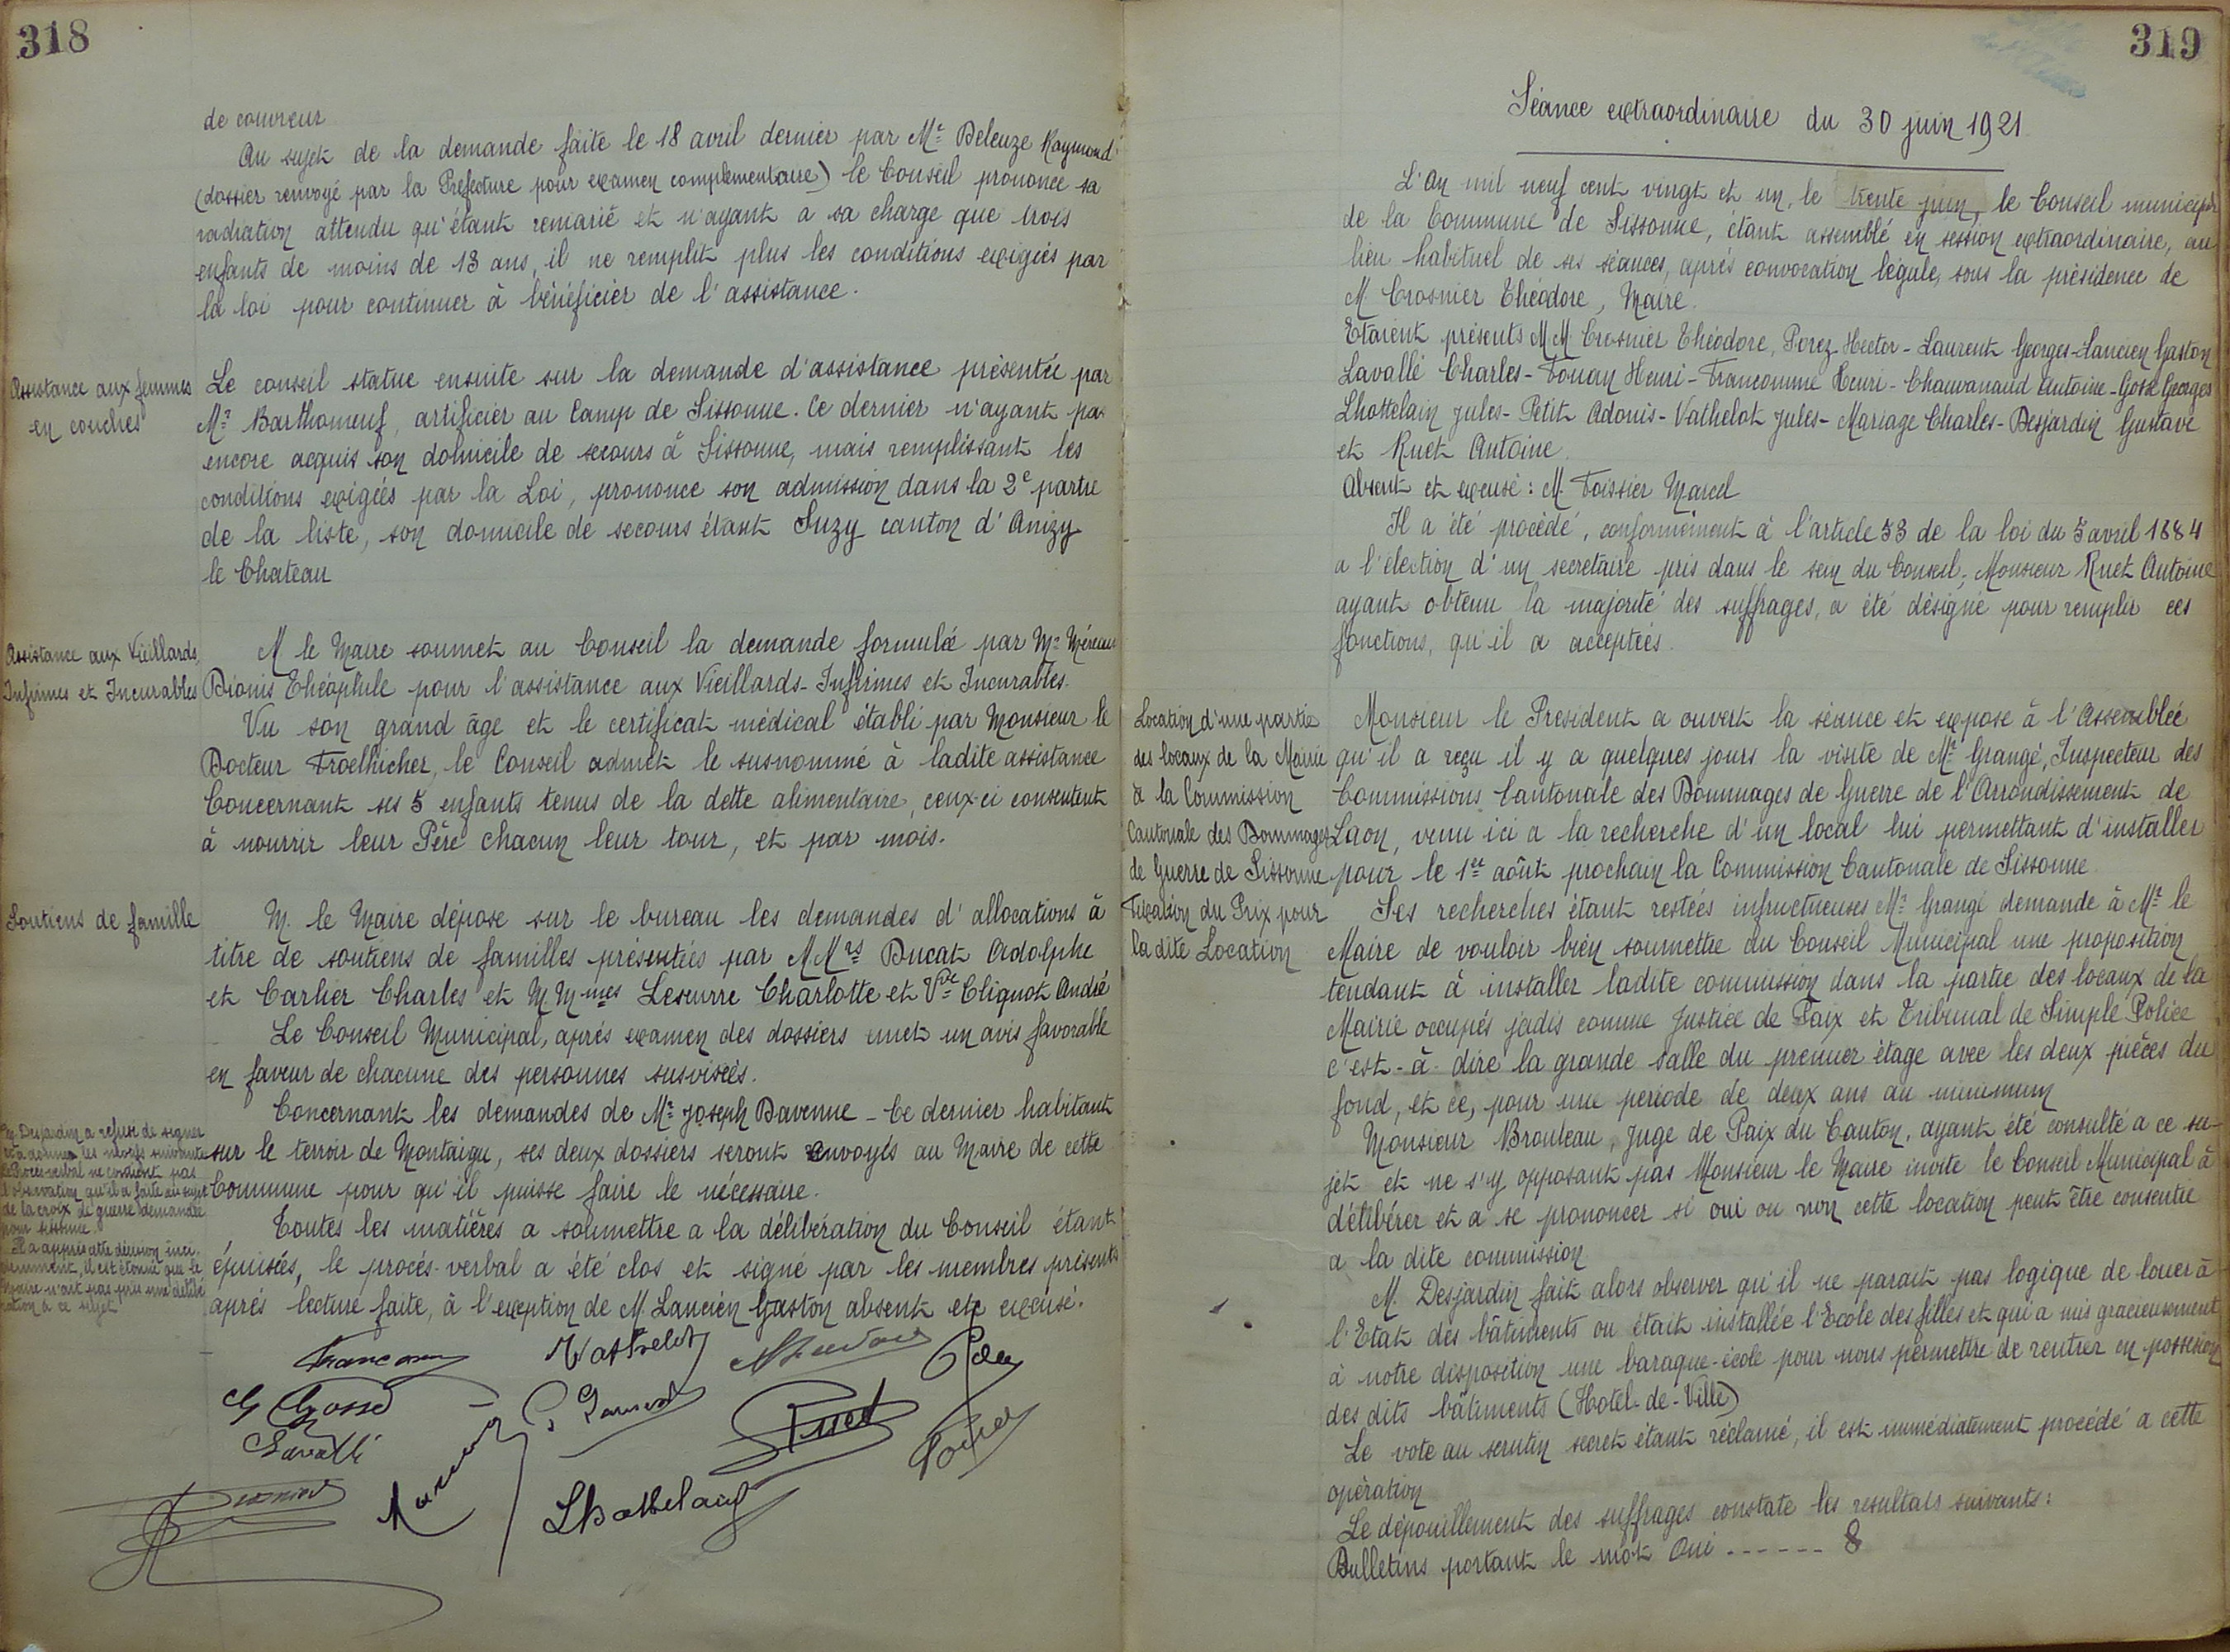 318
de couvreur
Au sujet de la demande faite le 18 avril dernier par Mr Deleuze Raymond
(dossier renvoyé par la Préfecture pour examen complémentaire) le Conseil prononce sa
radiation attendu qu'étant remarié et n'ayant a sa charge que trois
enfants de moins de 13 ans, il ne remplit plus les conditions exigées par
la loi pour continuer à bénéficier de l'assistance.
Assistance aux femmes
en couches
Le conseil statue ensuite sur la demande d'assistance présentée par
Mr Barthomeuf, artificier au Camp de Sissonne. Ce dernier n'ayant pas
encore acquis son domicile de secours à Sissonne, mais remplissant les
conditions exigées par la Loi, prononce son admission dans la 2e partie
de la liste, son domicile de secours étant Suzy canton d'Anizy
le Chateau
Assistance aux Vieillards,
Infirmes et Incurables
M le Maire soumet au Conseil la demande formulée par Mr
Dionis Théophile pour l'assistance aux Vieillards-Infirmes et Incurables.
Vu son grand âge et le certificat médical établi par Monsieur le
Docteur Froelhicher, le Conseil admet le susnommé à ladite assistance
Concernant ses 5 enfants tenus de la dette alimentaire, ceux-ci consentent
à nourrir leur Père chacun leur tour, et par mois.
Soutiens de famille
M. le Maire dépose sur le bureau les demandes d'allocations à
titre de soutiens de familles présentées par MMrs Ducat Adolphe
et Carlier Charles et M.Mmes Leseurre Charlotte et Vve Cliquot André
Le Conseil Municipal, après examen des dossiers émet un avis favorable
en faveur de chacune des personnes susvisées.
Concernant les demandes de Mr Joseph Davenne - Ce dernier habitant
sur le terroir de Montaigu, ses deux dossiers seront envoyés au Maire de cette
Commune pour qu'il puisse faire le nécessaire.
Toutes les matières a soumettre a la délibération du Conseil étant
épuisées, le procès-verbal a été clos et signé par les membres présents
après lecture faite, à l'exception de M. Lancien Gaston absent et excusé.
Mr Desjardin a refusé de signer
et a donné les motifs suivants
le Procès-verbal ne contient pas
l'observation qu'il a faite au sujet
de la croix de guerre demandée
pour Sissonne.
Il a appris cette décision
il est étonné que le
Maire n'ait pas pris une délibé
ration à ce sujet
Vathelot
G Gosse
Lavallé
Ruet
Lhottelain
319
Séance extraordinaire du 30 juin 1921
L'An mil neuf cent vingt et un, le trente juin, le Conseil municipal
de la Commune de Sissonne, étant assemblé en session extraordinaire, au
lieu habituel de ses séances, après convocation légale, sous la présidence de
M. Crosnier Théodore, Maire.
Etaient présents MM Crosnier Théodore, Porez Hector - Laurent Georges - Lancien Gaston
Lavallé Charles - Touan Henri - Francomme Henri - Chauvanaud Antoine - Gosse Georges
Lhottelain Jules - Petit Adonis - Vathelot Jules - Mariage Charles - Desjardin Gustave
et Ruet Antoine.
Absent et excusé : M. Toissier Marcel
Il a été procédé, conformément à l'article 53 de la loi du 5 avril 1884
a l'élection d'un secrétaire pris dans le sein du Conseil, Monsieur Ruet Antoine
ayant obtenu la majorité des suffrages, a été désigné pour remplir ces
fonctions, qu'il a acceptées.
Location d'une partie
des locaux de la Mairie
à la Commission
Cantonale des Dommages
de Guerre de Sissonne
Fixation du Prix pour
la dite Location
Monsieur le Président a ouvert la séance et expose à l'Assemblée
qu'il a reçu il y a quelques jours la visite de Mr Grangé, Inspecteur des
Commissions Cantonale des Dommages de Guerre de l'Arrondissement de
Laon, venu ici a la recherche d'un local lui permettant d'installer
pour le 1er août prochain la Commission Cantonale de Sissonne
Ses recherches étant restées infructueuses Mr Grangé demande à Mr le
Maire de vouloir bien soumettre au Conseil Municipal une proposition
tendant à installer ladite commission dans la partie des locaux de la
Mairie occupés jadis comme Justice de Paix et Tribunal de Simple Police
c'est-à-dire la grande salle du premier étage avec les deux pièces du
fond, et ce, pour une période de deux ans au minimum
Monsieur Brouteau, Juge de Paix du Canton, ayant été consulté a ce su-
jet et ne s'y opposant pas Monsieur le Maire invite le Conseil Municipal à
délibérer et a se prononcer si oui ou non cette location peut être consentie
a la dite commission
M. Desjardin fait alors observer qu'il ne parait pas logique de louer à
l'Etat des bâtiments ou était installée l'Ecole des filles et qui a mis gracieusement
à notre disposition une baraque-école pour nous permettre de rentrer en possession
des dits bâtiments (Hotel-de-Ville)
Le vote au scrutin secret étant réclamé, il est immédiatement procédé a cette
opération
Le dépouillement des suffrages constate les resultats suivants :
Bulletins portant le mot Oui ------ 8